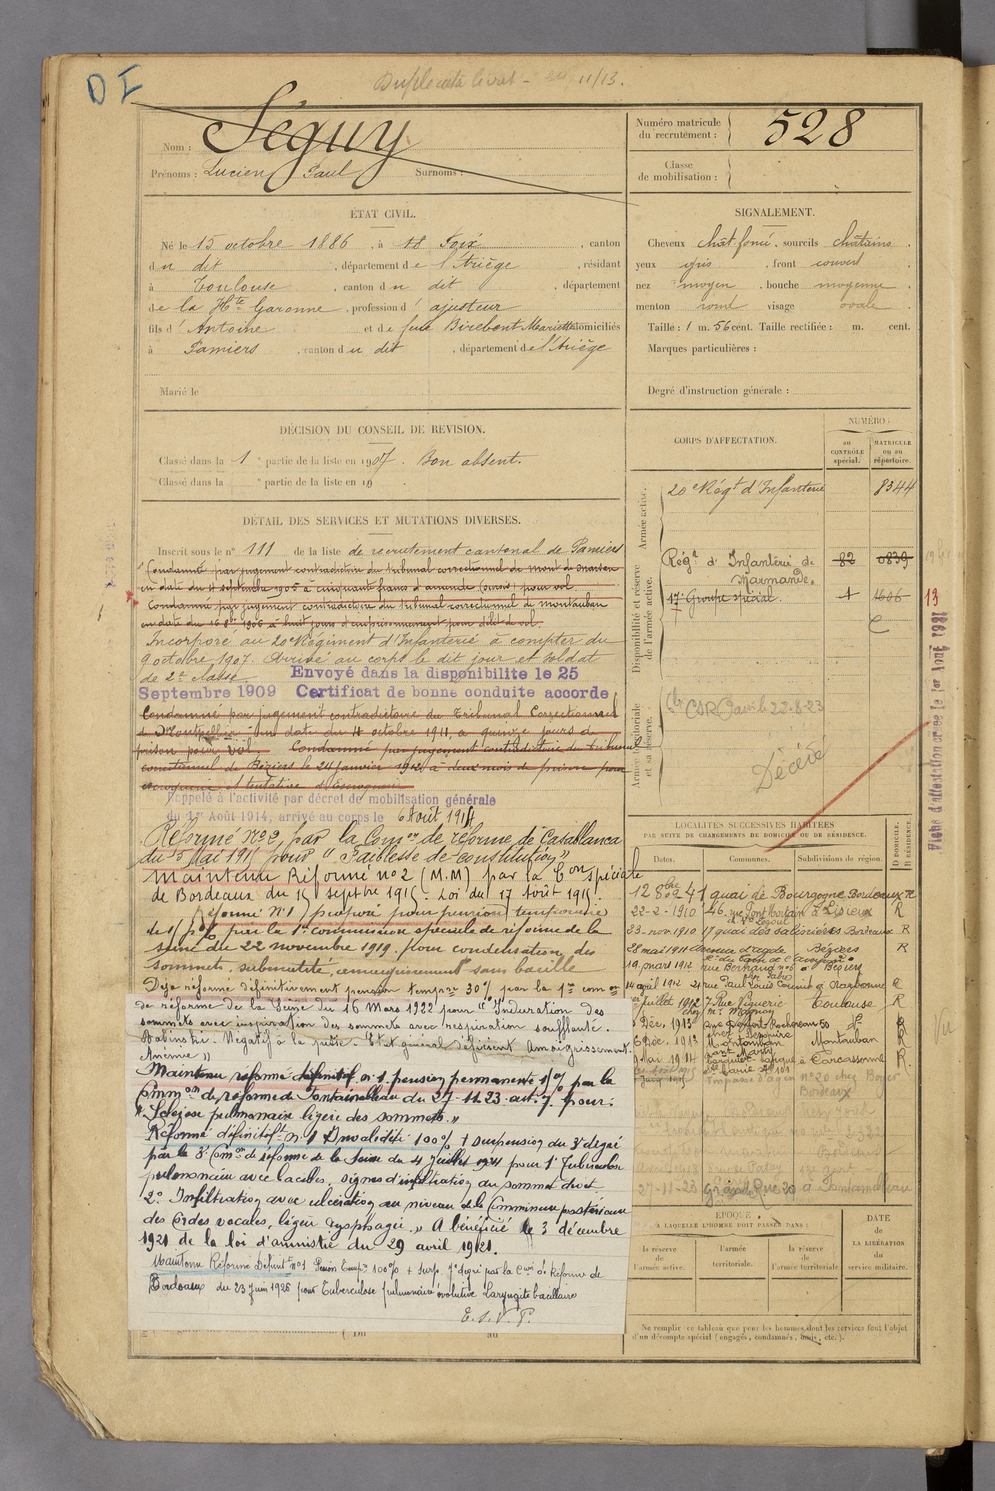 D I
Duplicata livret - 11/13.
Nom : Séguy
Prénoms : Lucien Paul Surnoms :
Numéro matricule
du recrutement : 528
Classe
de mobilisation :
ÉTAT CIVIL.
Né le 15 octobre 1886, à Foix, canton
du dit, département de l'Ariège, résidant
à Toulouse, canton du dit, département
de la Hte Garonne, profession d'ajusteur
fils d'Antoine et de feue Birebent Mariette domiciliés
à Pamiers, canton du dit, département de l'Ariège
Marié le
SIGNALEMENT.
Cheveux chât foncé, sourcils châtains.
yeux gris, front couvert
nez moyen, bouche moyenne,
menton rond visage ovale.
Taille : 1 m. 56 cent. Taille rectifiée : m. cent.
Marques particulières :
Degré d'instruction générale :
DÉCISION DU CONSEIL DE REVISION.
Classé dans la 1e partie de la liste en 1907. Bon absent.
Classé dans la e partie de la liste en 19 .
DÉTAIL DES SERVICES ET MUTATIONS DIVERSES.
Inscrit sous le n° 111 de la liste de recrutement cantonal de Pamiers
Condamné par jugement contradictoire du tribunal correctionnel de Mont de Marsan
en date du 4 septembre 1905 à cinquante francs d'amende (sursis) pour vol.
Condamné par jugement contradictoire du tribunal correctionnel de Montauban
en date du 16 8bre 1906 à huit jours d'emprisonnement pour délit de vol.
Incorporé au 20e Régiment d'Infanterie à compter du
9 octobre 1907. Arrivé au corps le dit jour et soldat
de 2e classe. Envoyé dans la disponibilite le 25
Septembre 1909 Certificat de bonne conduite accorde
Condamné par jugement contradictoire du Tribunal Correctionnel
de Montpellier en date du 4 octobre 1911, à quinze jours de
prison pour vol. Condamné par jugement contradictoire du tribunal
correctionnel de Béziers le 24 janvier 1912 à deux mois de prison pour
escroquerie et tentative d'Escroquerie
Rappelé à l'activité par décret de mobilisation générale
du 1er Août 1914, arrivé au corps le 6 Août 1914
Réformé N° 2, par la Comon de réforme de Casablanca
du 5 Mai 1915 pour "Faiblesse de constitution"
Maintenu Réformé n° 2 (M.M) par la Con spéciale
de Bordeaux du 15 septbre 1915. Loi du 17 Août 1915.
Réformé N° 1, proposé pour pension temporaire
par la 1e commission spéciale de réforme de la
Seine du 22 novembre 1919 pour condensation des
sommets, submatité, amaigrissement sans bacille
Déjà réformé définitivement pension tempre 30% par la 1re comon
de réforme de la Seine du 16 Mars 1922 pour "Induration des
sommets avec inspiration des sommets avec respiration soufflante.
Babinski. Négatif à la prise. Etat général déficient Amaigrissement.
Anémie"
Maintenu réformé définitif n° 1 pension permanente % par la
Common de réforme de Fontainebleau du 27-11-23 art. 7 pour:
"Sclérose pulmonaire légère des sommets."
Réformé définitift n° 1 Invalidité 100% + surpension du 3e degré
par la 3e Comon de réforme de la Seine du 4 Juillet 1924 pour 1° Tuberculose
pulmonaire avec bacilles, signes d'infiltration du sommet droit
2° Infiltration avec ulcération au niveau de la Commissure postérieure
des cordes vocales, légère dysphagie." A bénéficié le 3 décembre
1921 de la loi d'amnistie du 29 avril 1921.
Maintenu Réformé Définitt n°1 Pension Tempre 100% + Surp. par la Con de Réforme de
Bordeaux du 23 Juin 1926 pour Tuberculose pulmonaire évolutive laryngite bacillaire
Du au
CORPS D'AFFECTATION.
NUMÉRO :
au CONTRÔLE spécial.
MATRICULE ou au répertoire.
Armée active.
20e Régt d'Infanterie 8344
Disponibilité et réserve de l'armée active.
Régt d'Infanterie de Marmande. 82 0839
17e Groupe spécial. 1 1606
13
Armée territoriale et sa réserve.
CSR Paris le 22-8-23
Décédé
Fiche d'attestation créée le 1er Août 1931
LOCALITÉS SUCCESSIVES HABITÉES
PAR SUITE DE CHANGEMENTS DE DOMICILE OU DE RÉSIDENCE.
D DOMICILE. R RÉSIDENCE.
Dates. Communes. Subdivisions de région.
12 8bre 09 41 quai de Bourgogne Bordeaux R
22-2-1910 46, rue Pont Mortain à Lisieux R
23-nov. 1910 17 quai des salinières Bordeaux R
28 mai 1911 Avenue d'Agde Béziers R
19 mars 1912 rue Bernard n° 6 à Béziers
14 avril 1912 21 rue Paul Louis Courier à Narbonne R
Juillet 1912 7 Rue Viguerie Toulouse R
Déc. 1913 rue Denfert Rochereau 50
6 Déc. 1913 Montauban Montauban R
Mai 1914 à Carcassonne R.
Impasse d'Agen n° 20 chez Boyer
Bordeaux
27-11-23 Grande Rue 20 à Fontainebleau
ÉPOQUE
À LAQUELLE L'HOMME DOIT PASSER DANS :
la réserve de l'armée active.
l'armée territoriale.
la réserve de l'armée territoriale
DATE de LA LIBÉRATION du service militaire.
Ne remplir ce tableau que pour les hommes dont les services font l'objet
d'un décompte spécial (engagés, condamnés, omis, etc.).